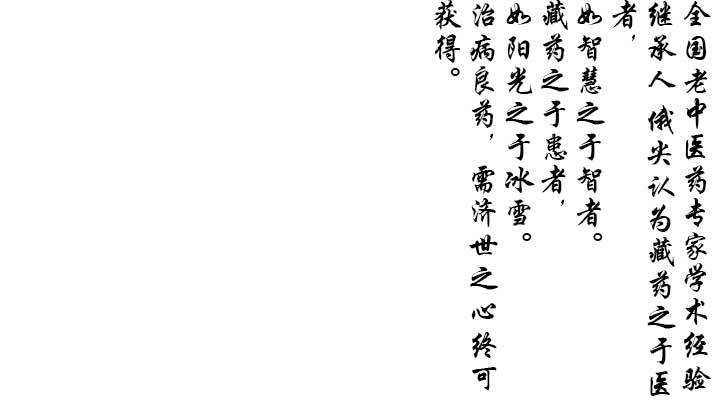 全国老中医药专家学术经验
继承人俄尖认为藏药之于医
者，
如智慧之于智者。
藏药之于患者，
如阳光之于冰雪。
治病良药，需济世之心终可
获得。